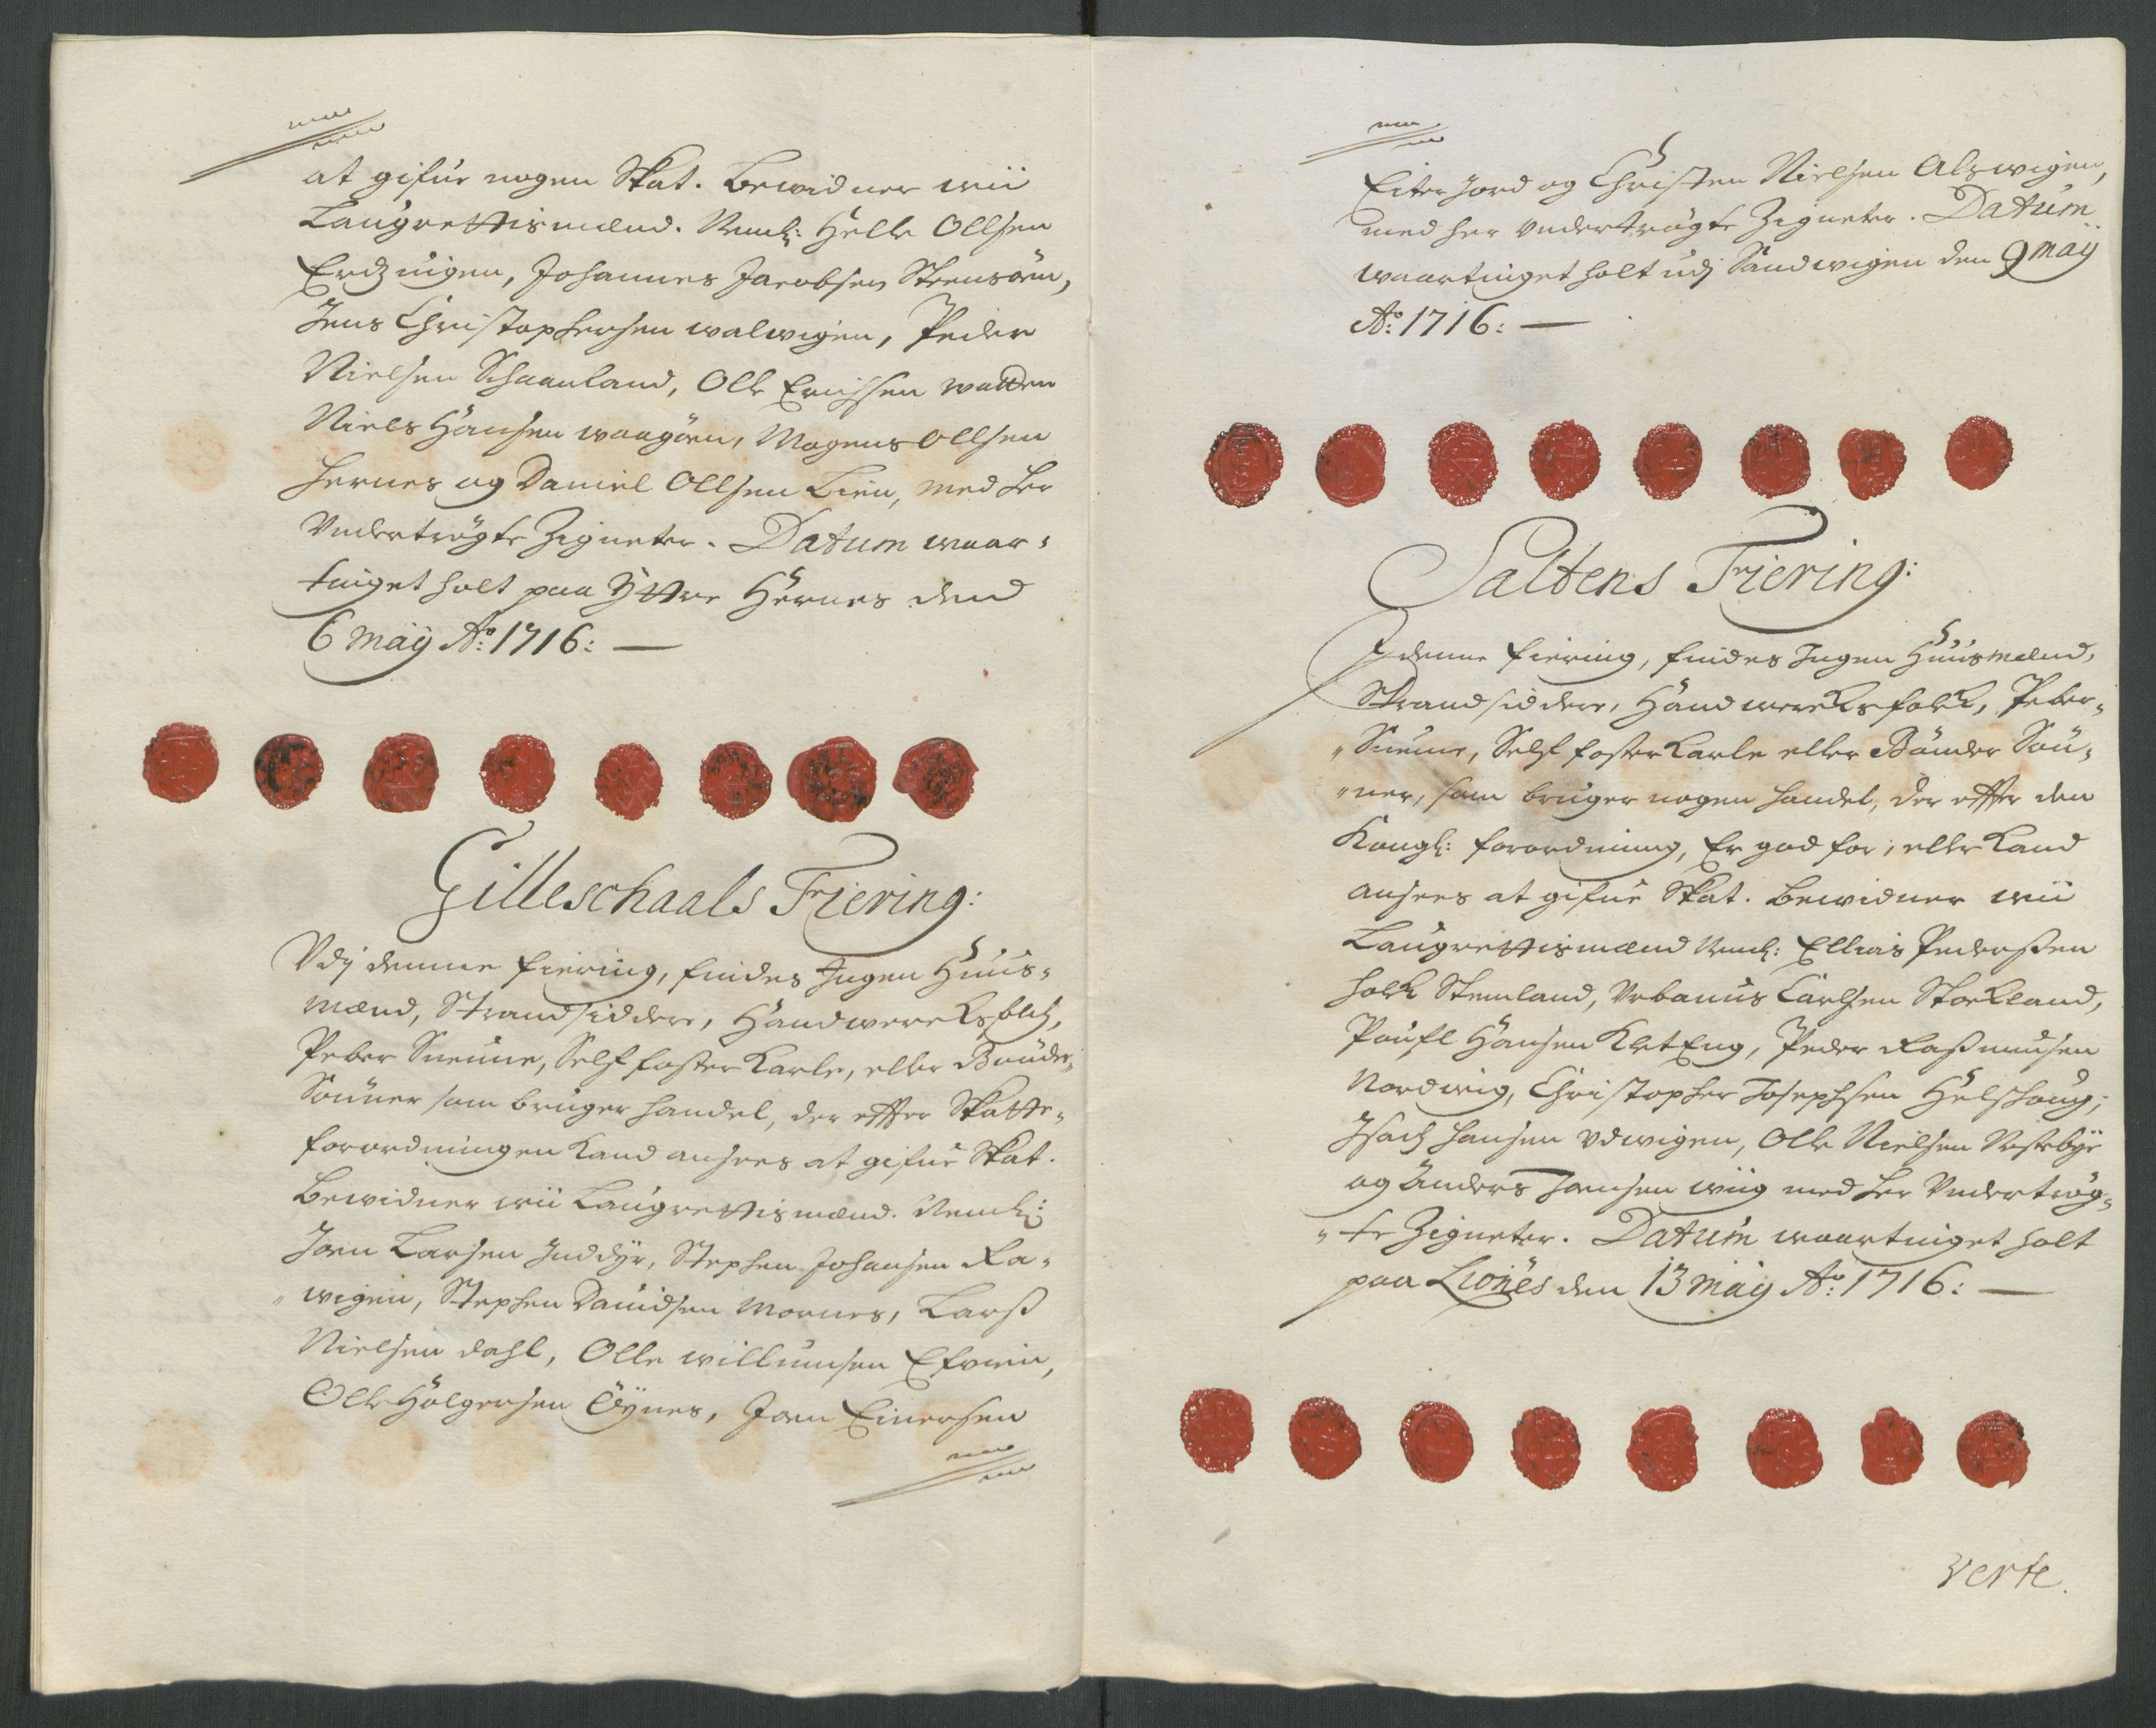 at gifue nogen Skat. Bewidner wii
Laugrettismænd. Neml: Helle Ollsen
Johannes Jacobsen
Jens Christophersen walwigen, Peder
Nielsen Schaanland, Olle Erichsen
Niels Hansen waagöen, Mogens Ollsen
Hernes og Daniel Ollsen Lien, med her
Vndertrögte Zigneter. Datum waar-
tinget holt paa Yttre Hernes dend
6 Maÿ Ao: 1716: —
Gilleschaals Fiering:
Vdj denne fiering, findes Ingen Huus-
mænd, Strandsiddere, Handwercksfolch,
Peber Suenne, Self foster Karle, eller Bönder-
Sönner som bruger handel, der effter Skatte-
forordningen Kand ansees at gifue Skat.
Bewidner wii Laugrettismænd. Neml:
Joen Larsen Inddÿr, Stephen Johansen Ra-
wigen, Stephen Dauidsen Mornes, Larß
Nielsen dahl, Olle willumsen
Olle Holgersen Öÿnes, Joen Einersen
Eiterjord og Christen Nielsen Alswigen,
med her vndertrögte Zigneter. Datum
waartinget holt udj Sandwigen den 9 Maÿ
Ao: 1716: —
Saltens Fiering:
I denne fiering, findes Ingen Huusmænd,
Strandsiddere, Handwercksfolck, Peber-
Suenne, Self foster Karle eller Bönder Sön-
ner, som bruger nogen handel, der effter den
Kongl: forordning, Er god for, eller Kand
ansees at gifue Skat. Bewidner wii
Laugrettismænd Neml: Ellias Pederßen
Stemland, Vrbanus Carlsen Storkland,
Poufl Hansen KletEng, Peder Raßmusen
Nordwig, Christopher Josephsen Helshoug,
Isach Hansen Vdwigen, Olle Nielsen Nestebye
og Anders Joensen wiig med her Vndertrög-
te Zigneter. Datum waartinget holt
paa Lionës den 13 Maÿ Ao: 1716: —
verte.